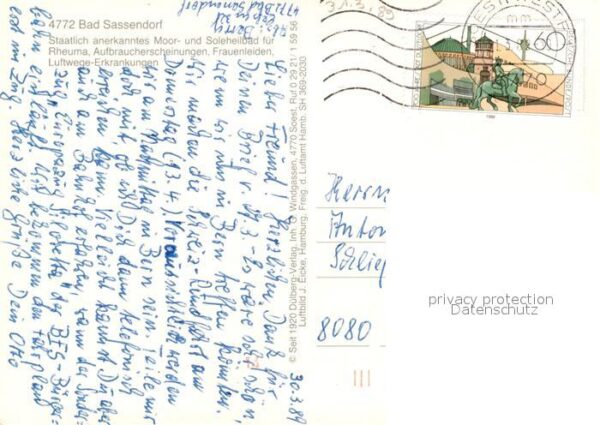 4772 Bad Sassendorf
Staatlich anerkanntes Moor- und Soleheilbad für
Rheuma, Aufbraucherscheinungen, Frauenleiden,
Luftwege-Erkrankungen
4772 Bad Sassendorf
30.3.89
Lieber Freund! Herzlichen Dank für
Deinen Brief v. 21.3. Es wäre sehr schön,
wenn wir uns in Bern treffen könnten.
Wir machen die Schweiz-Rundfahrt am
Donnerstag (13.4.). Voraussichtlich werden
wir am Nachmittag in Bern sein. Teile mir
doch mit, ob ich Dich dann telefonisch
erreichen kann. Vielleicht kannst Du aber
auch am Bahnhof erfahren, wann der Sonder-
zug der BFS-Bürger-
Bahn einläuft. Ich den Fahrplan
erst im Zug. Herzliche Grüße Dein Otto
© Seit 1920 Dülberg-Verlag, Inh. G. Windgassen, 4770 Soest, Ruf 0 29 21 / 1 59 56
Luftbild J. Eicke, Hamburg. Freig. d. Luftamt Hamb. SH 369-2030
31.3.89
mm
60
1988
Herrn
Anton
8080
privacy protection
Datenschutz